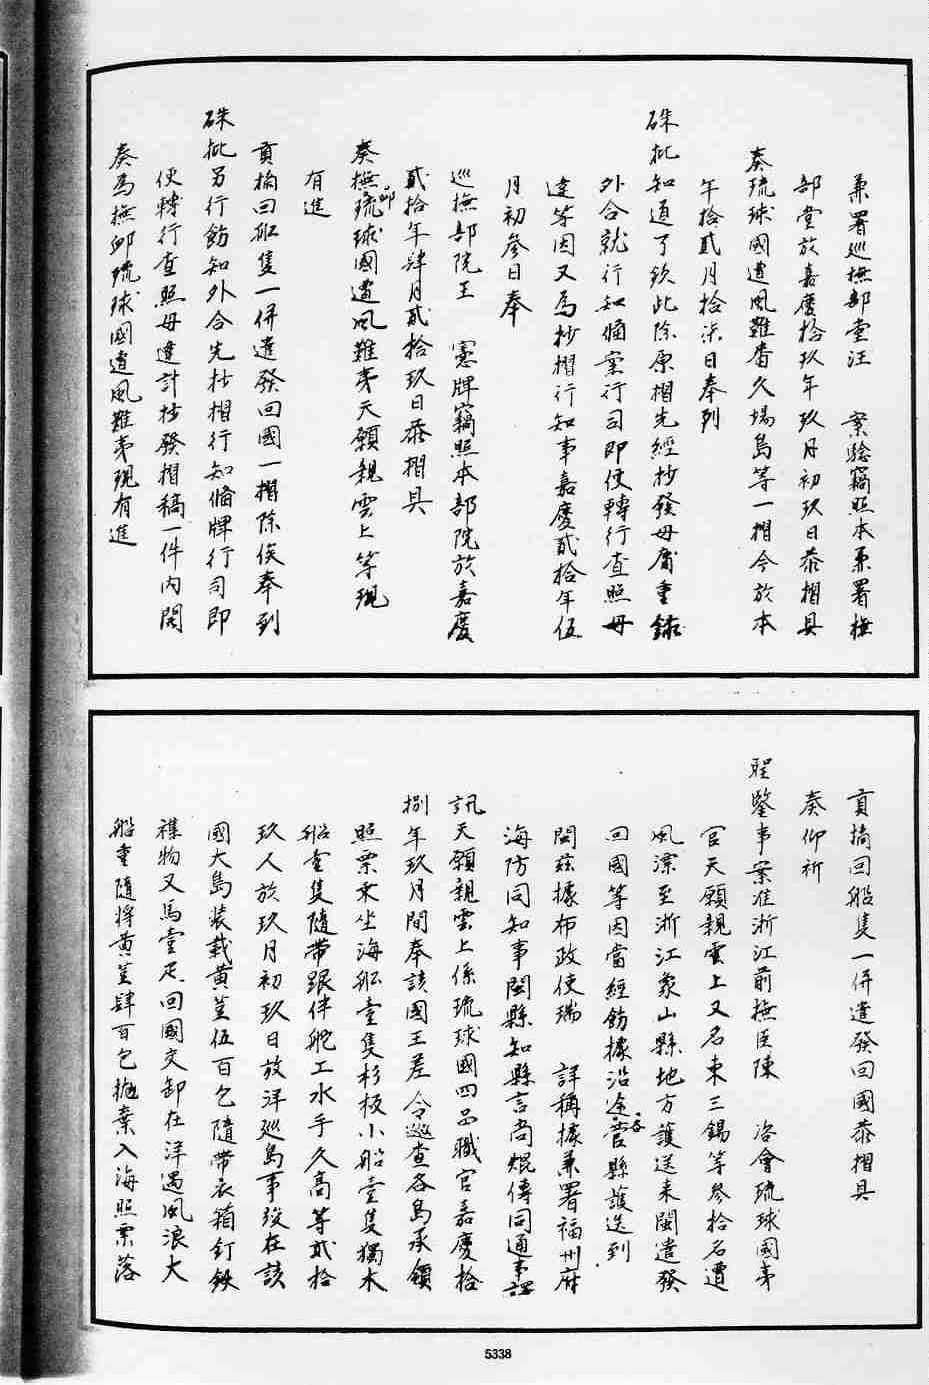 兼署巡撫部堂汪　案驗竊照本兼署撫
部堂於嘉慶拾玖年玖月初玖日恭摺具
奏琉球國遭風難番久場島等一摺今於本
年拾貳月拾柒日奉到
硃批知道了欽此除原摺先經抄發毋庸重錄
外合就行知備案行司即便轉行查照毋
違等因又為抄摺行知事嘉慶貳拾年伍
月初參日奉
巡撫部院王　憲牌竊照本部院於嘉慶
貳拾年肆月貳拾玖日恭摺具
奏撫卹琉球國遭風難夷天願親雲上等現
有進
貢摘回船隻一併遣發回國一摺除俟奉到
硃批另行飭知外合先抄摺行知備牌行司即
便轉行查照毋違計抄發摺稿一件內開
奏為撫卹琉球國遭風難夷現有進
貢摘回船隻一併遣發回國恭摺具
奏仰祈
聖鑒事案准浙江前撫臣陳　咨會琉球國夷
官天願親雲上又名東三錫等參拾名遭
風漂至浙江象山縣地方護送來閩遣發
回國等因當經飭據沿途各營縣護送到
閩茲據布政使瑞　詳稱據兼署福州府
海防同知事閩縣知縣言尚焜傳同通事譯
訊天願親雲上係琉球國四品職官嘉慶拾
捌年玖月間奉該國王差令巡查各島承領
照票乘坐海船壹隻杉板小船壹隻獨木
船壹隻隨帶跟伴舵工水手久高等貳拾
玖人於玖月初玖日放洋巡島事竣在該
國大島裝載黃荳伍百包隨帶衣箱釘鉄
襍物又馬壹疋回國交卸在洋遇風浪大
船重隨將黃荳肆百包拋棄入海照票落
5338